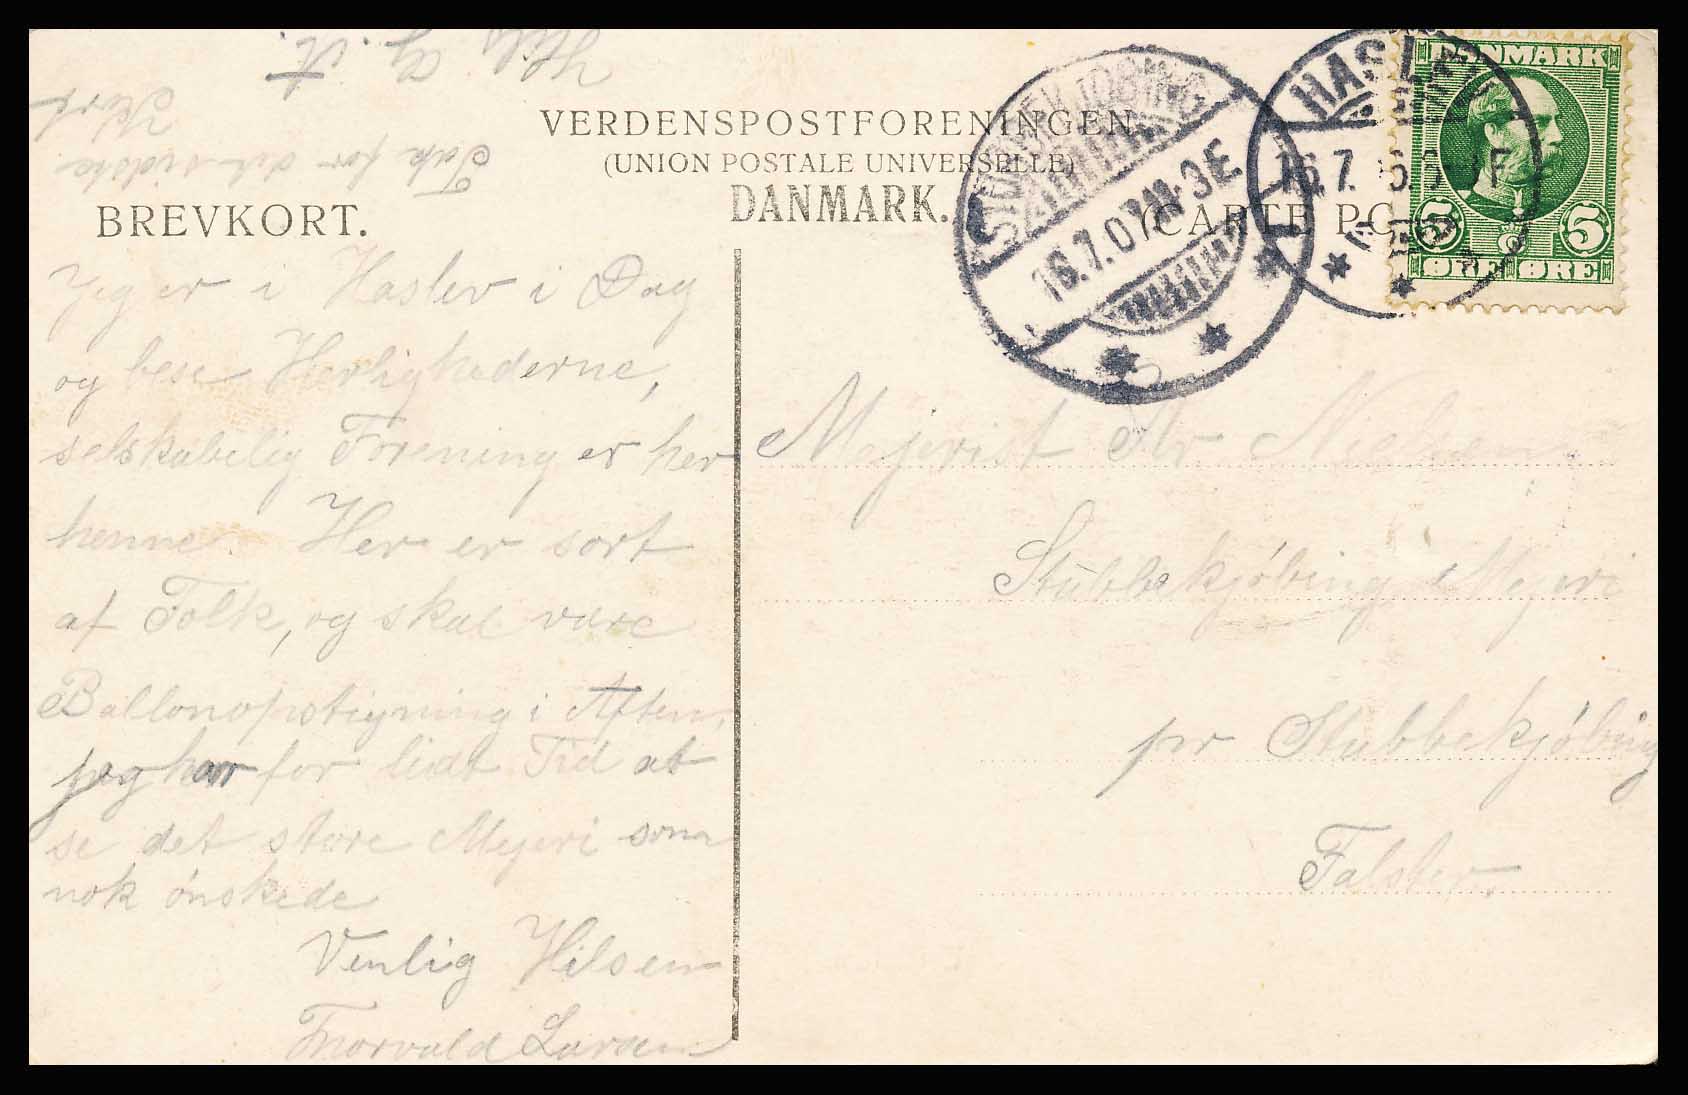 Hils
Tak for det sidste
Kort
VERDENSPOSTFORENINGEN
(UNION POSTALE UNIVERSELLE)
DANMARK.
BREVKORT.
(CARTE PO
STUBBEKJØBING
16.7.07 11-3E
HASLEV
16.7.
DANMARK
5 5
ØRE ØRE
Jeg er i Haslev i Dag
og bese Herlighederne,
selskabelig Forening er her
henne. Her er sort
af Folk, og skal være
Ballonopstigning i Aften,
jeg har for lidt Tid at
se det store Mejeri som
nok ønskede
Venlig Hilsen
Thorvald Larsen
Mejerist Hr Nielsen
Stubbekjøbing Mejeri
pr Stubbekjøbing
Falster.